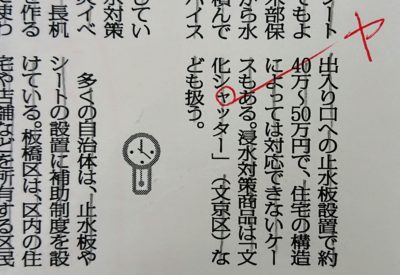 ート
でもよ
木部保
から水
積んで
バイス
してい
水対策
災イベ
長机
作る
を使わ
ヤ
出入り口への止水板設置で約
40万〜50万円で、住宅の構造
によっては対応できないケー
スもある。浸水対策商品は「文
化シャッター」（文京区）な
ども扱う。
多くの自治体は、止水板や
シートの設置に補助制度を設
けている。板橋区は、区内の住
宅や店舗などを所有する区民